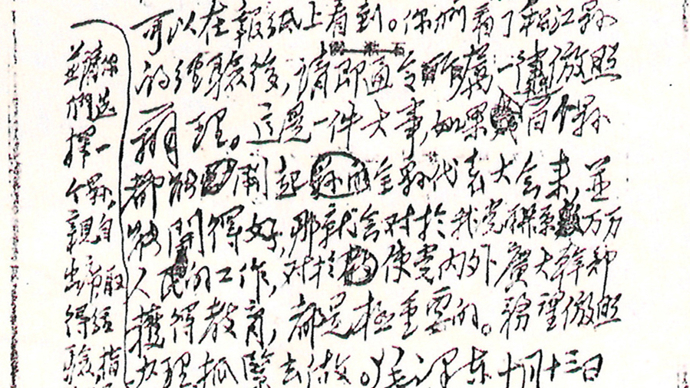 可以在報紙上看到。你們看了松江縣
的經驗後,請即通令所屬一律倣照
辦理。這是一件大事,如果百个縣
都能開起全縣代表大會來,並
能開得好,那就會對於我党联系數万万
人民的工作,對於使党内外廣大幹部
獲得教育,都是極重要的。務望倣照
辦理抓緊去做。毛澤東十月十三日
並請你
們選
擇一
個縣,
親自
出席取
得經
驗指